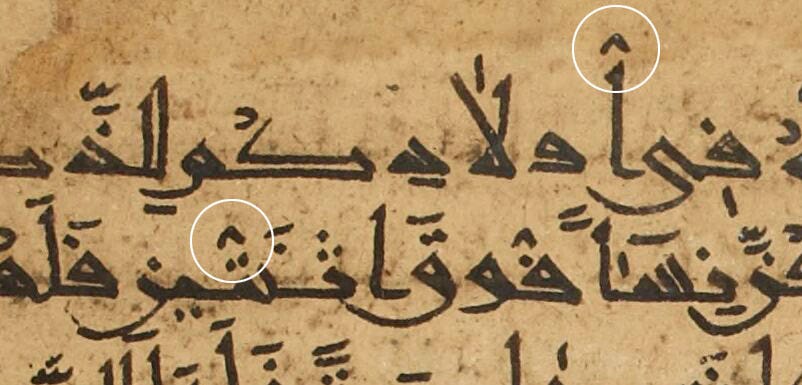 فِى أُولَادِكُمْ لِلذَّك
نَّ نِسَاءً فَوْقَ اثْنَتَيْنِ فَلَهُ